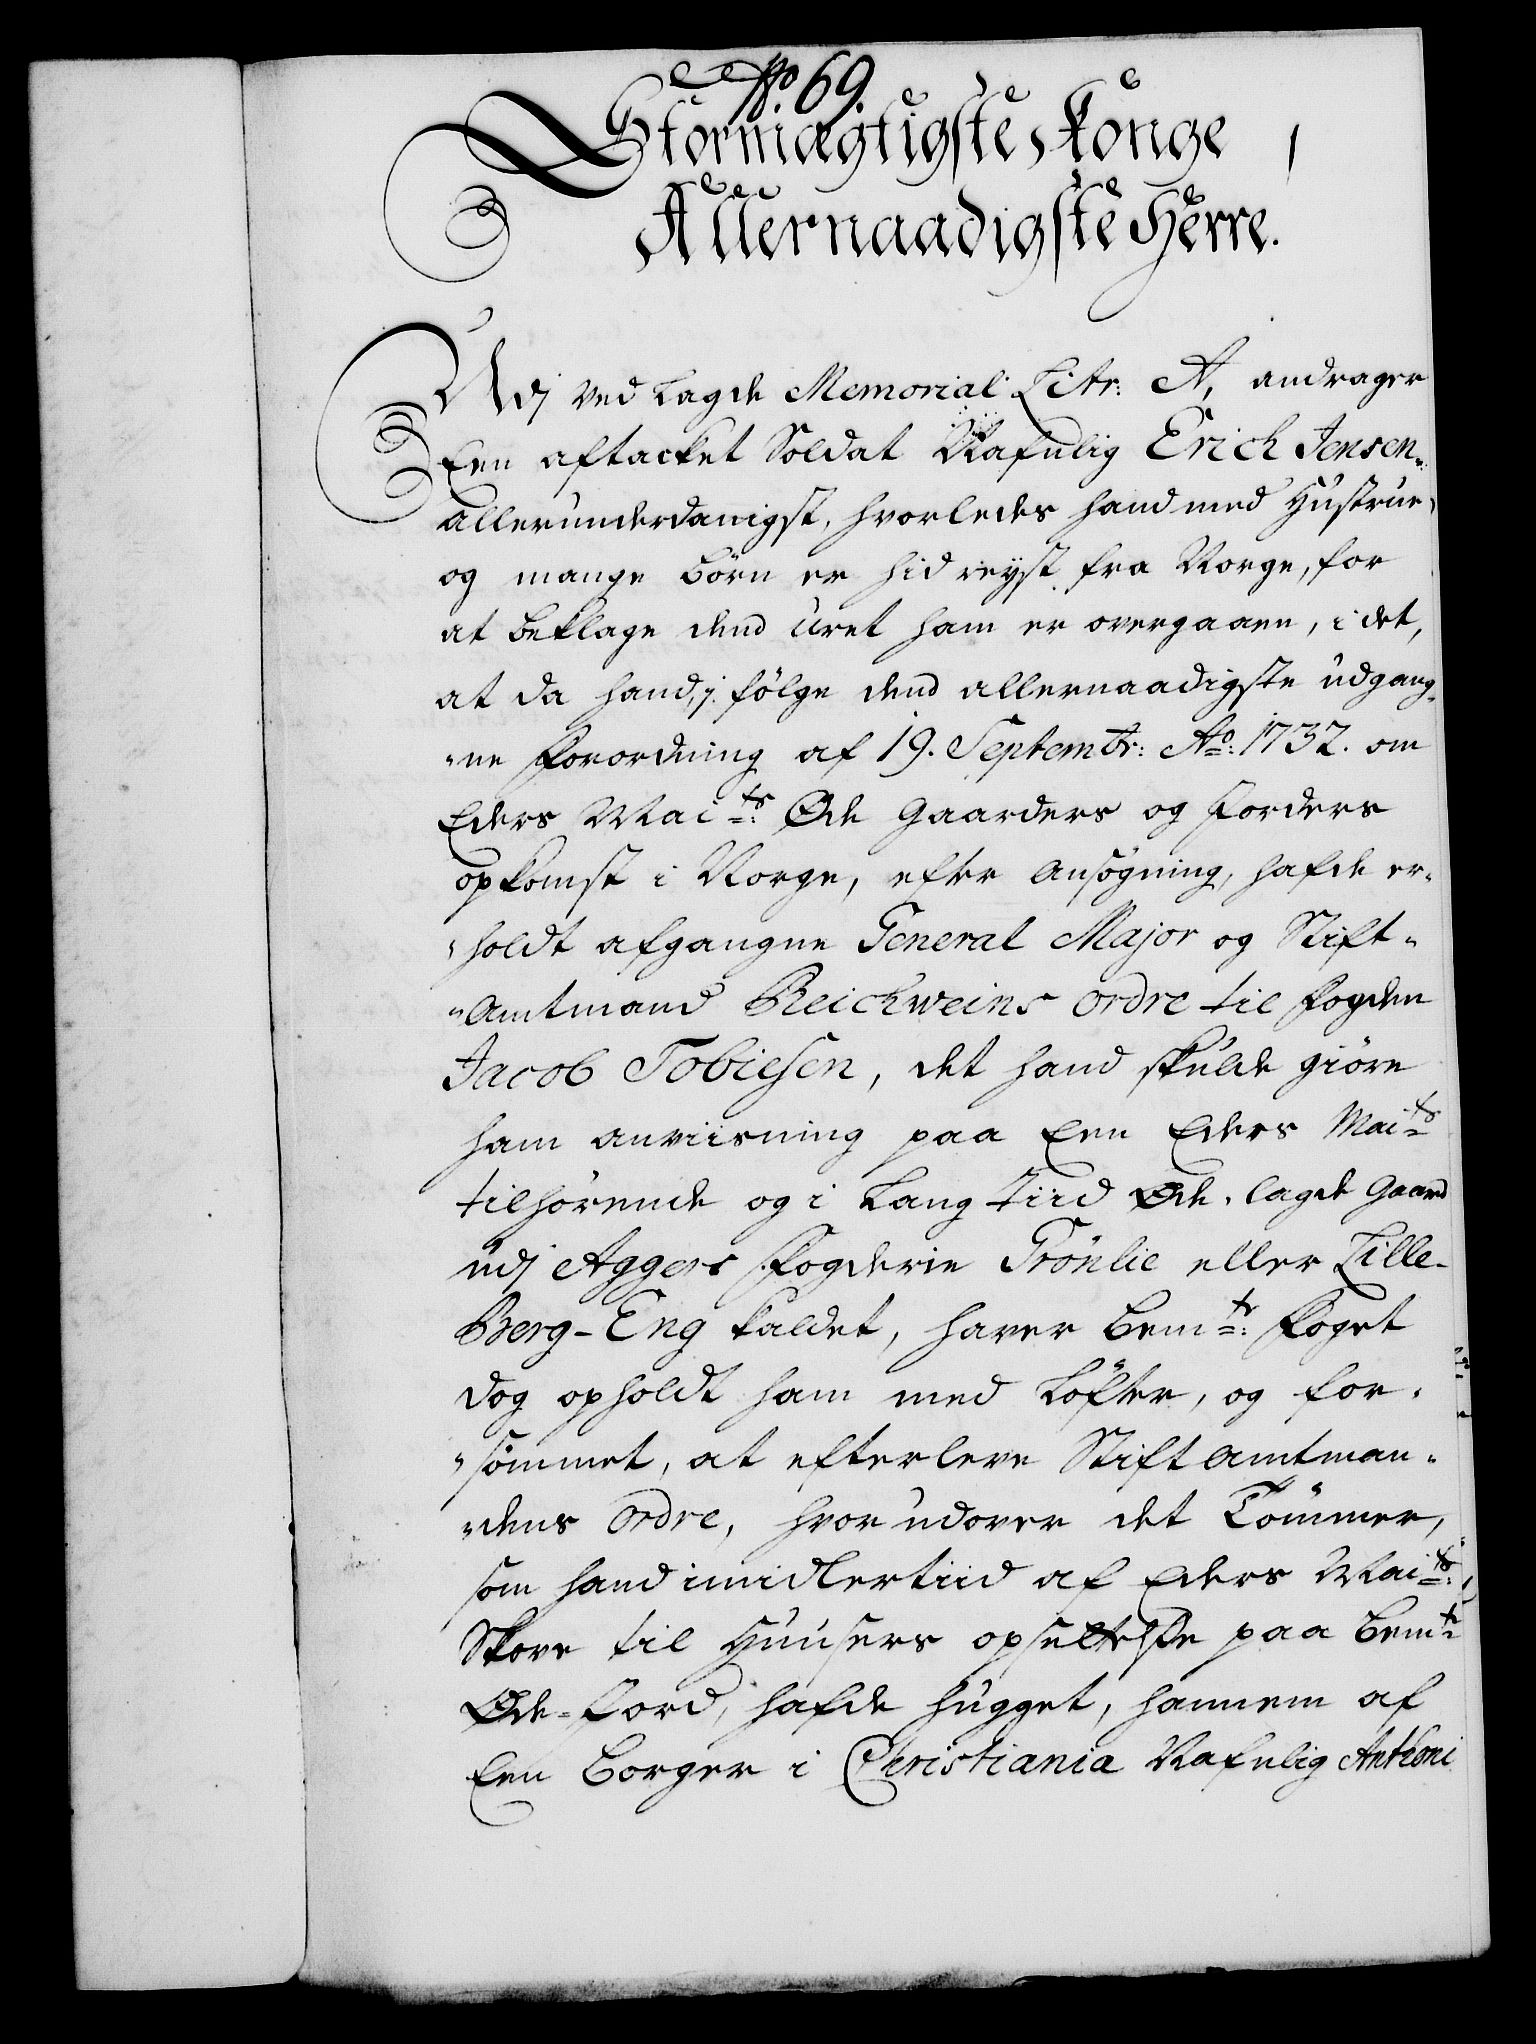 No. 69.
Stormægtigste Konge
Allernaadigste Herre.
Udj ved lagde Memorial Litr: A, andrager
Een aftacket Soldat Nafnlig Erich Jensen
allerunderdanigst, hvorledes hand med Hustrue
og mange börn er hid reyst fra Norge, for
at beklage dend uret ham er overgaaen, i det,
at da hand, j følge dend allernaadigste udgang-
-ne Forordning af 19. Septembr: Ao: 1732. om
Eders Maits: Øde Gaarders og Jorders
opkomst i Norge, efter ansögning, hafde er-
-holdt afgangne General Major og Stift-
-Amtmand Reichweins Ordre til Fogden
Jacob Tobiesen, det hand skulde giöre
ham anviisning paa Een Eders Maits
tilhörende og i lang Tiid Øde-lagde Gaard
udj Aggers Fogderie Grönlie eller Lille-
Berg-Eng kaldet, haver bemte: Foget
dog opholdt ham med Löfter, og for-
-sömmet, at efterleve Stift Amtman-
-dens Ordre, hvorudover det Tömmer,
som hand imidlertiid af Eders Maits:
Skove til Huusers opsettelse paa bemte
Øde-Jord, hafde hugget, hannem af
Een Borger i Christiania Nafnlig Anthoni